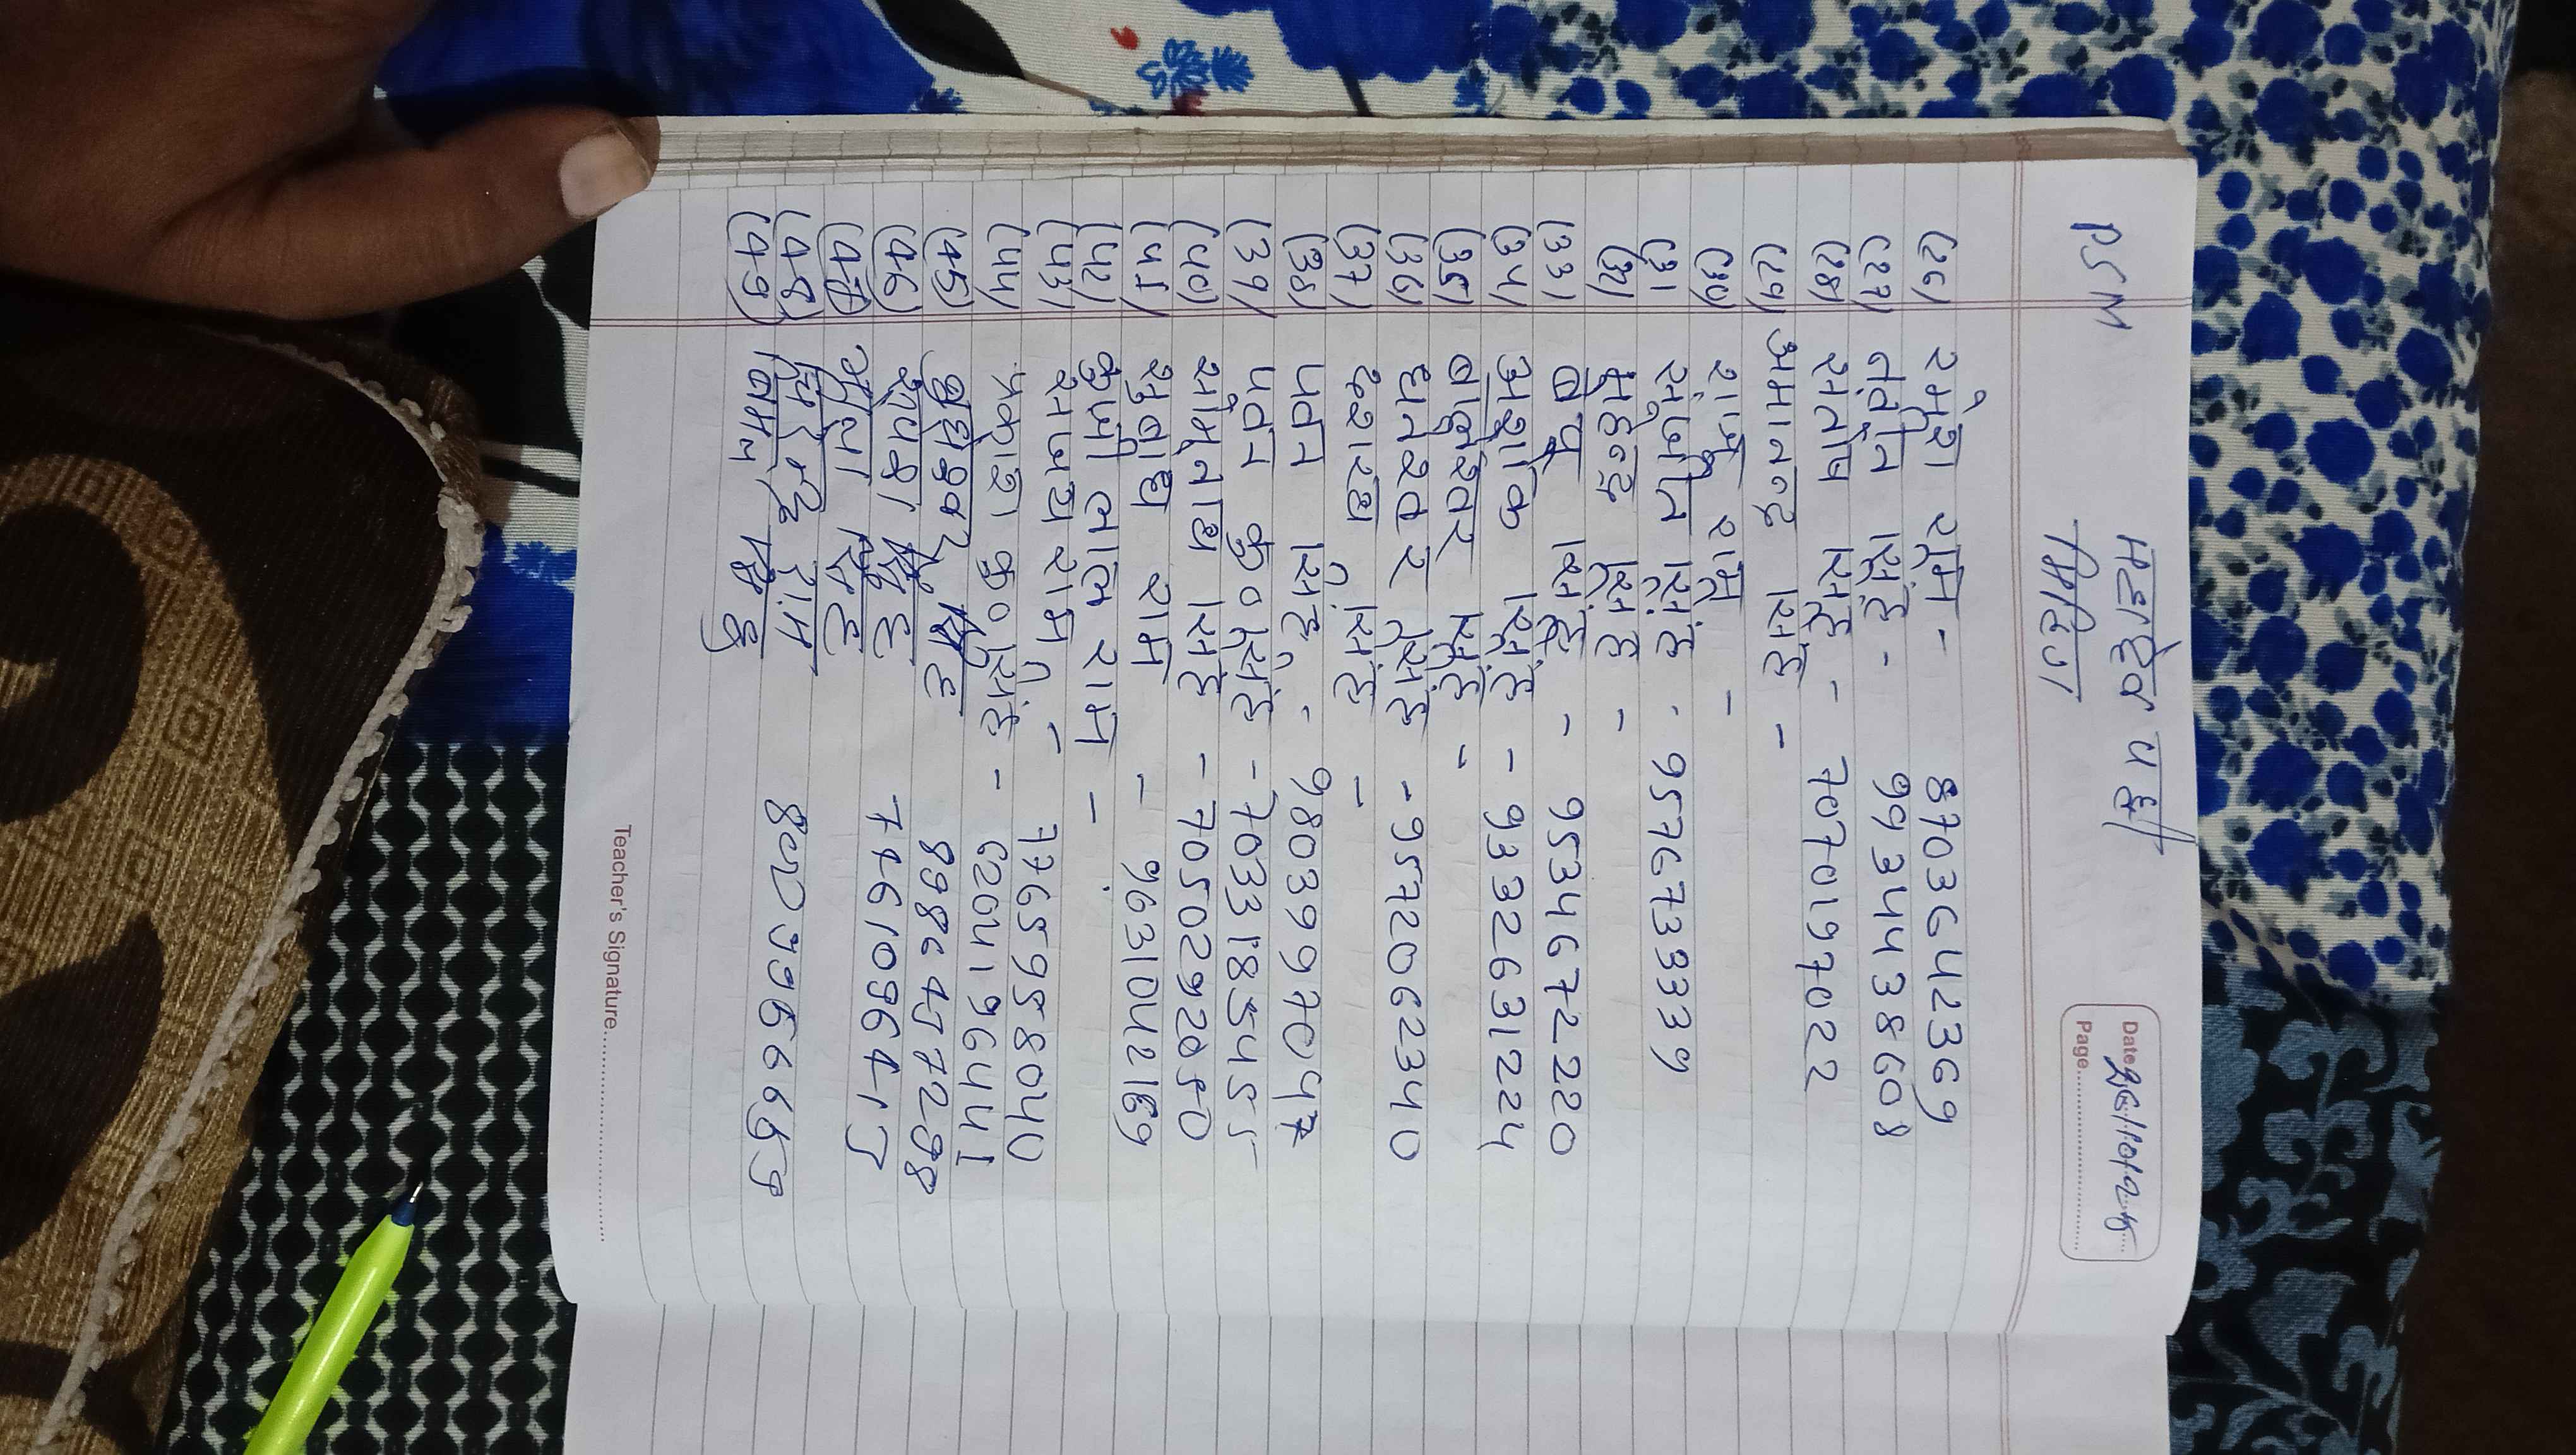 PSM
महादेव पही
Date 26/10/25
Page
(26) रमेश राम - 8703642369
(27) नवीन सिंह - 9934438608
(28) संतोष सिंह - 7070197022
(29) अमानन्द सिंह -
(30) राम -
(31 संजीत सिंह - 9576733339
(32) महेन्द्र सिंह -
(33) सिंह - 9534672220
(34) अशोक सिंह - 9332631224
(35) बालेश्वर सिंह -
(36) धनेश्वर सिंह - 9572062340
(37) दशरथ सिंह -
(38) पवन सिंह - 9803997047
(39) पवन कु० सिंह - 7033185455
(40) सोमनाथ सिंह - 7050292050
(41) सुबोध राम - 9631042169
(42) लाल राम -
(43) संजय राम - 7765958040
(44) प्रकाश कु० सिंह - 6204196441
(45) सिंह
(46) सिंह 7461096415
(47) सिंह
(48) राम
(49) सिंह
Teacher's Signature